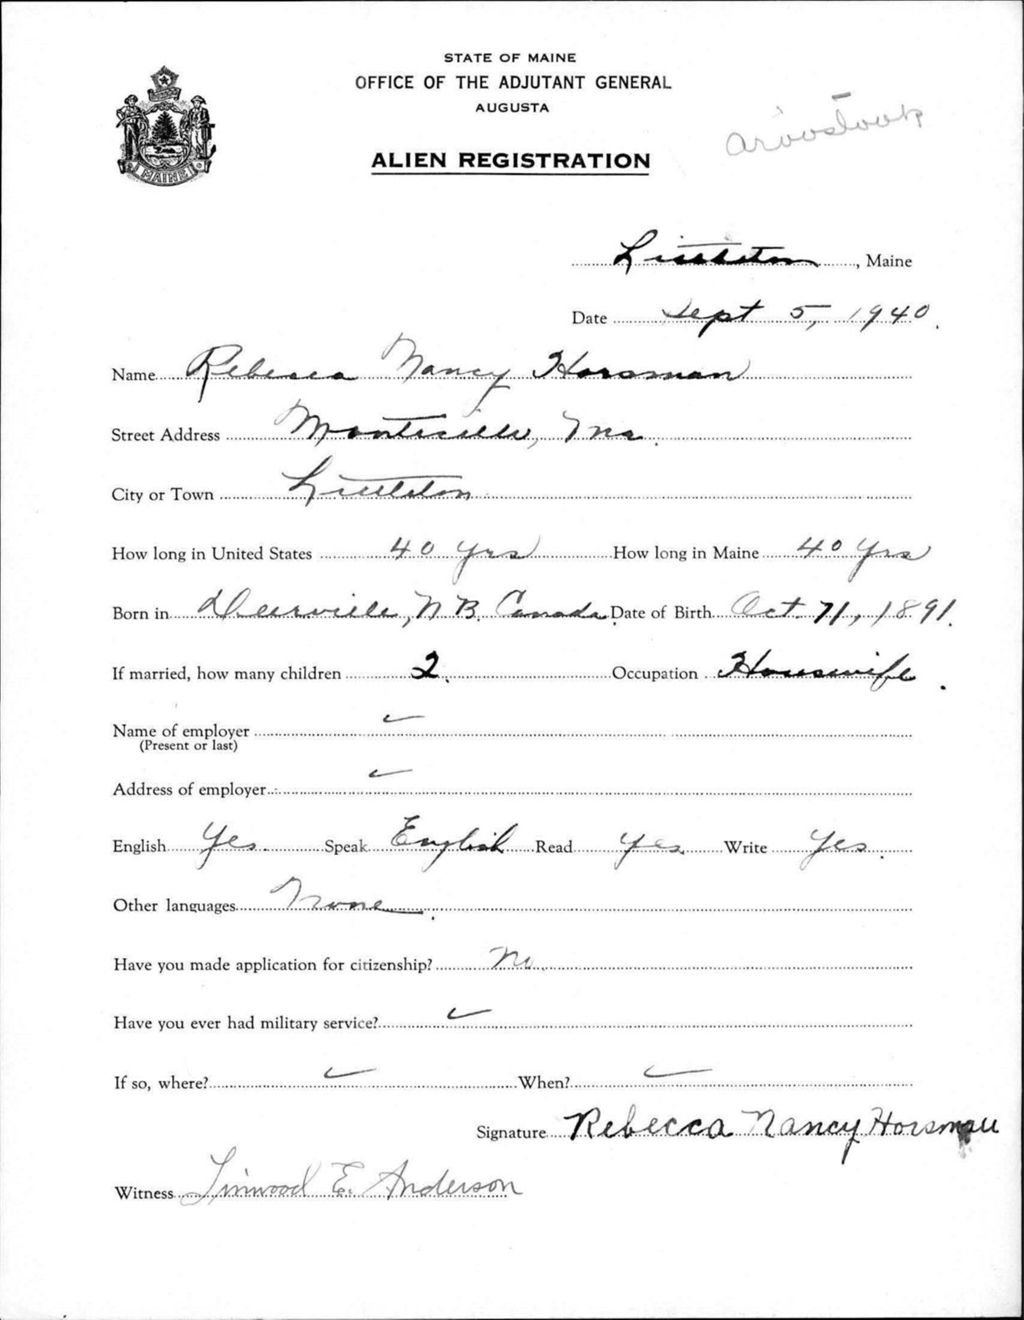 STATE OF MAINE
OFFICE OF THE ADJUTANT GENERAL
AUGUSTA
Aroostook
ALIEN REGISTRATION
MAINE
Littleton, Maine
Date Sept 5, 1940.
Name Rebecca Nancy Horsman
Street Address Monticello, Me.
City or Town Littleton
How long in United States 40 yrs How long in Maine 40 yrs
Born in , N.B. Canada Date of Birth Oct. 11, 1891.
If married, how many children 2. Occupation Housewife.
Name of employer ✓
(Present or last)
Address of employer ✓
English Yes. Speak English Read Yes Write Yes.
Other languages None.
Have you made application for citizenship? No.
Have you ever had military service? ✓
If so, where? ✓ When? ✓
Signature Rebecca Nancy Horsman
Witness Linwood E. Anderson